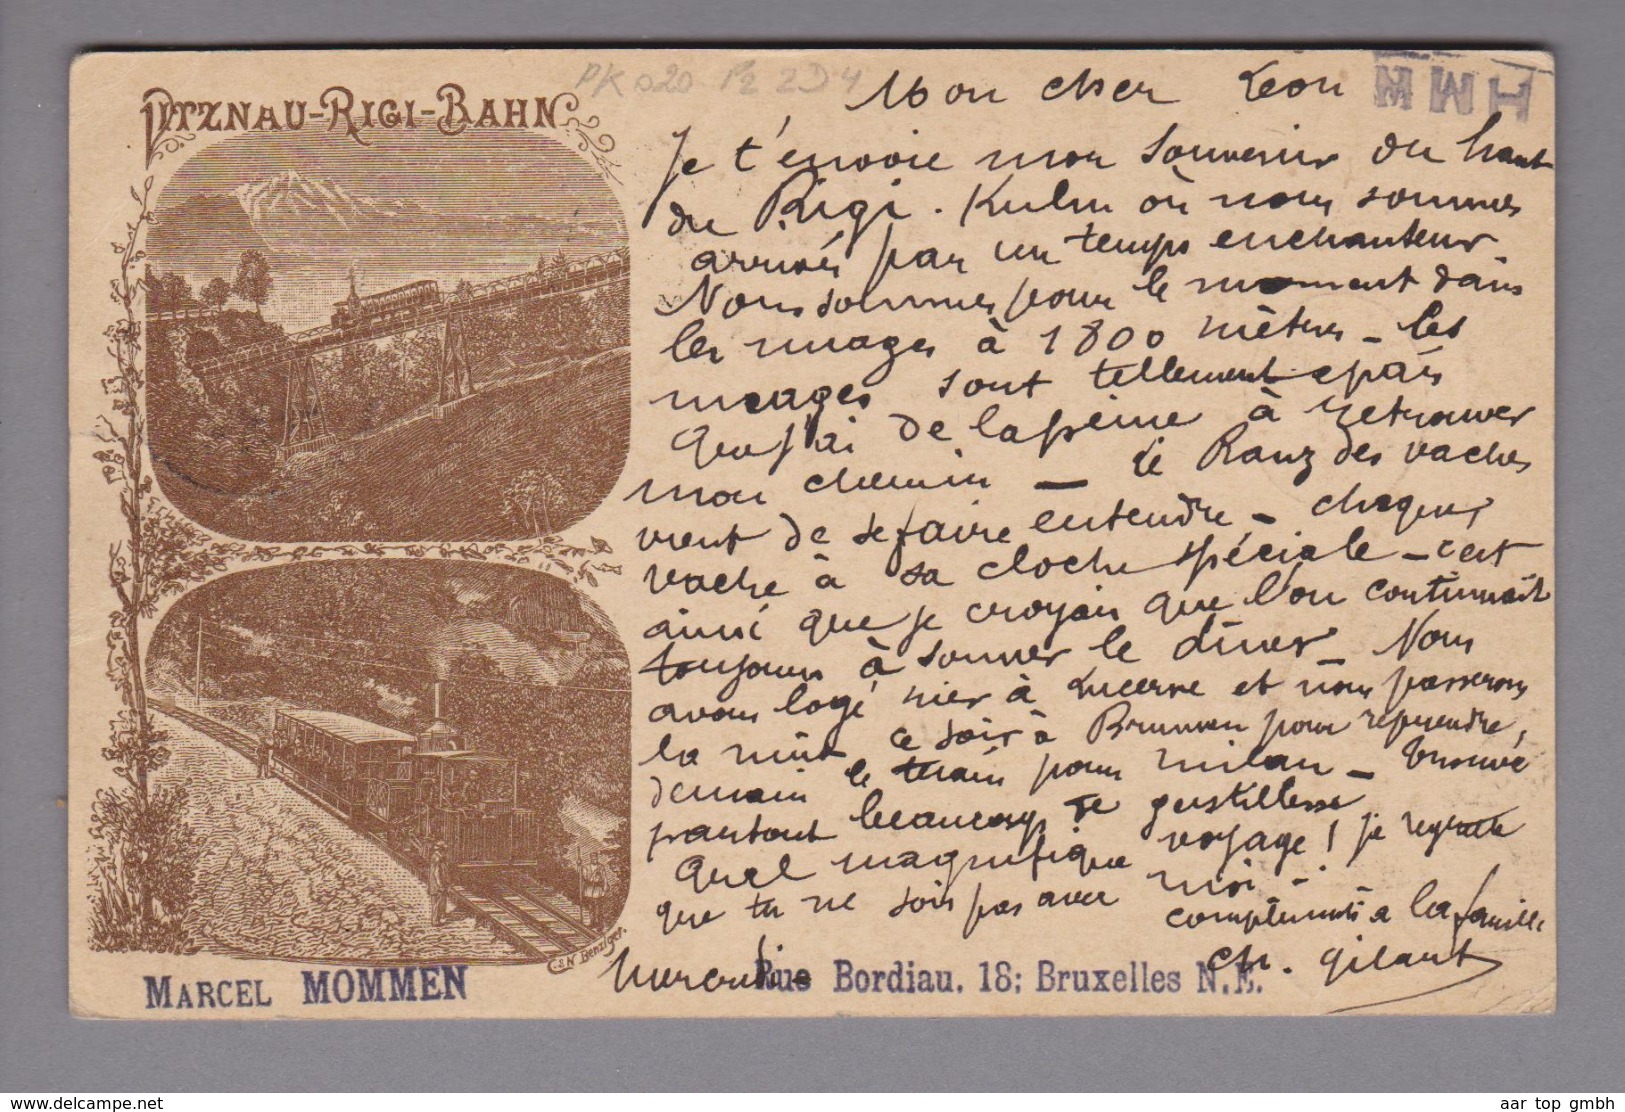 PK 020 Pz 2D4
VITZNAU-RIGI-BAHN
MWH
Mon cher Léon
Je t'envoie mon souvenir du haut
du Rigi. Kulm où nous sommes
arrivés par un temps enchanteur
Nous sommes pour le moment dans
les nuages à 1800 mètres – les
nuages sont tellement epais
que j'ai de la peine à retrouver
mon chemin – le Ranz des vaches
vient de se faire entendre – chaque
vache à sa cloche spéciale – c'est
ainsi que je croyais que l'on continuait
toujours à sonner le diner – Nous
avons logé hier à Lucerne et nous passerons
la nuit ce soir à Brunnen pour reprendre,
demain le train pour Milan – trouvé
partout beaucoup de gentillesse
Quel magnifique voyage! je regrette
que tu ne sois pas avec moi –
compliments à la famille
Mercredi Ch. Gilart
C.&N. Benziger.
MARCEL MOMMEN Rue Bordiau, 18; Bruxelles N.E.
www.delcampe.net
aar top gmbh